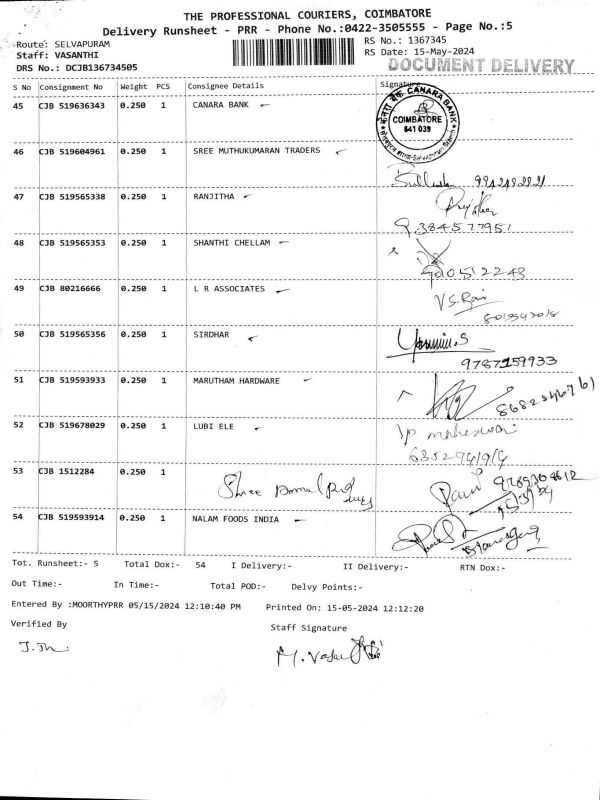 THE PROFESSIONAL COURIERS, COIMBATORE
Delivery Runsheet - PRR - Phone No.:0422-3505555 - Page No.:5
Route: SELVAPURAM
Staff: VASANTHI
DRS No.: DCJB136734505
RS No.: 1367345
RS Date: 15-May-2024
DOCUMENT DELIVERY
S No Consignment No Weight PCS Consignee Details Signature
45 CJB 519636343 0.250 1 CANARA BANK
CANARA BANK
COIMBATORE
641 039
46 CJB 519604961 0.250 1 SREE MUTHUKUMARAN TRADERS
47 CJB 519565338 0.250 1 RANJITHA
9384577951
48 CJB 519565353 0.250 1 SHANTHI CHELLAM
49 CJB 80216666 0.250 1 L R ASSOCIATES
50 CJB 519565356 0.250 1 SIRDHAR
Yasmin.S
9787159933
51 CJB 519593933 0.250 1 MARUTHAM HARDWARE
52 CJB 519678029 0.250 1 LUBI ELE
53 CJB 1512284 0.250 1
Shree
54 CJB 519593914 0.250 1 NALAM FOODS INDIA
Tot. Runsheet:- 5 Total Dox:- 54 I Delivery:- II Delivery:- RTN Dox:-
Out Time:- In Time:- Total POD:- Delvy Points:-
Entered By :MOORTHYPRR 05/15/2024 12:10:40 PM Printed On: 15-05-2024 12:12:20
Verified By Staff Signature